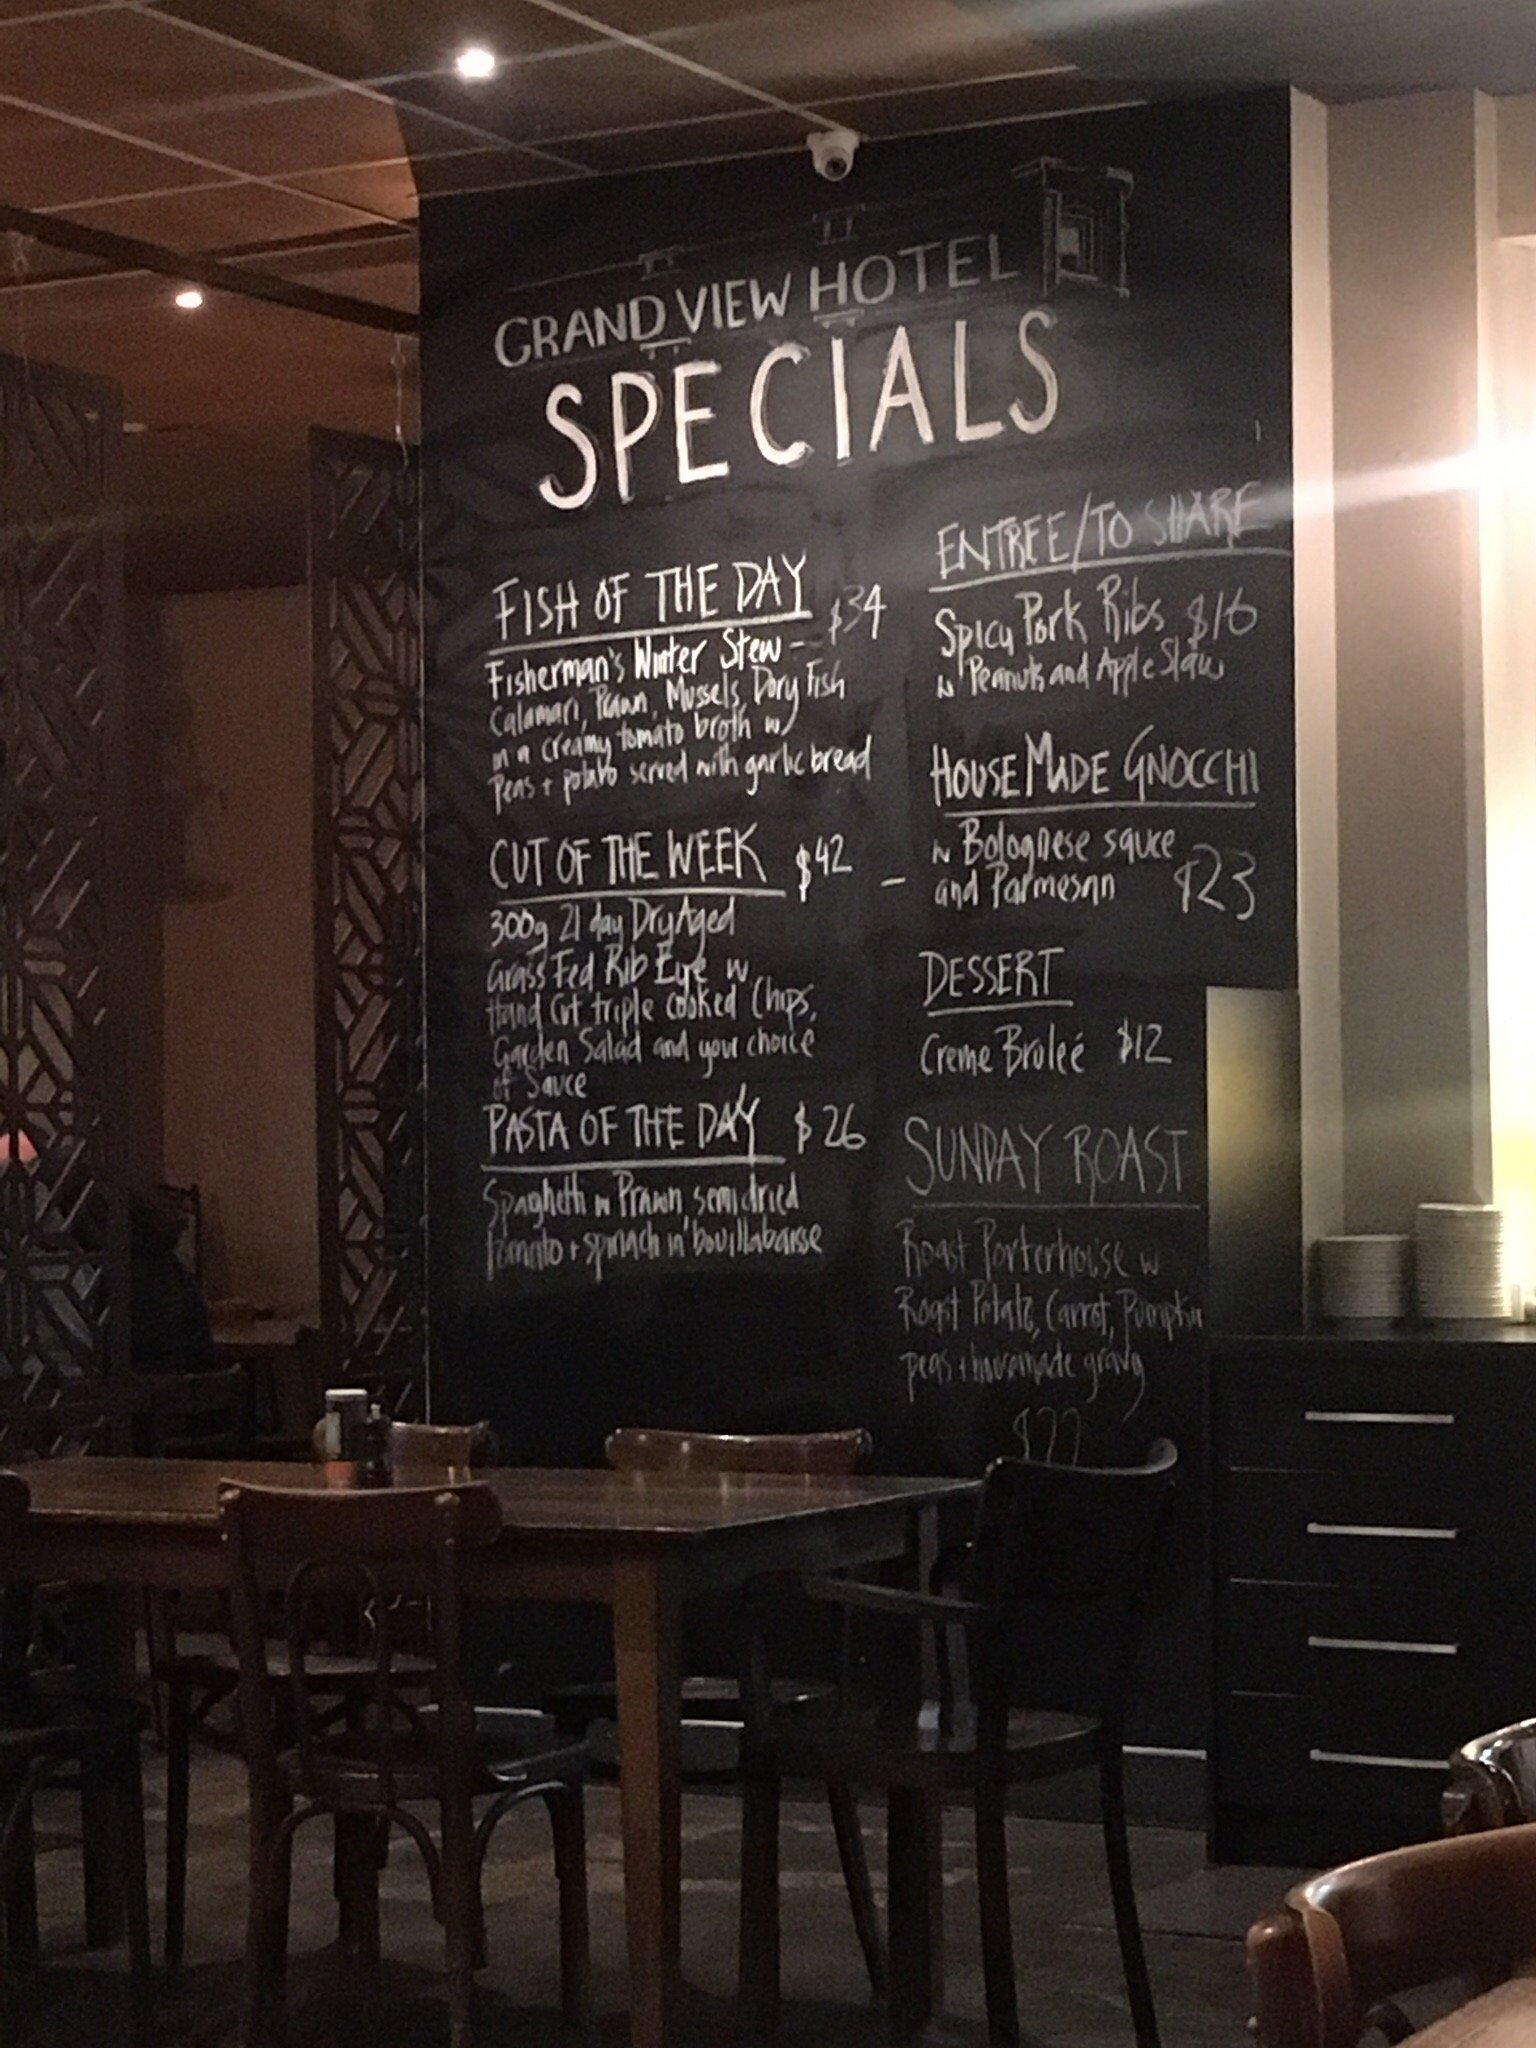 GRAND VIEW HOTEL
SPECIALS
FISH OF THE DAY $34
Fisherman's Winter Stew -
Calamari, Prawn, Mussels, Dory Fish
in a creamy tomato broth w
Peas + potato served with garlic bread
CUT OF THE WEEK $42 -
300g 21 day Dry Aged
Grass Fed Rib Eye w
Hand Cut triple cooked Chips,
Garden Salad and your choice
of Sauce
PASTA OF THE DAY $26
Spaghetti w Prawn, semi dried
tomato + spinach in bouillabaisse
ENTREE/TO SHARE
Spicy Pork Ribs $16
w Peanuts and Apple Slaw
HOUSE MADE GNOCCHI
w Bolognese sauce
and Parmesan $23
DESSERT
Creme Bruleé $12
SUNDAY ROAST
Roast Porterhouse w
Roast Potato, Carrot, Pumpkin
peas + housemade gravy